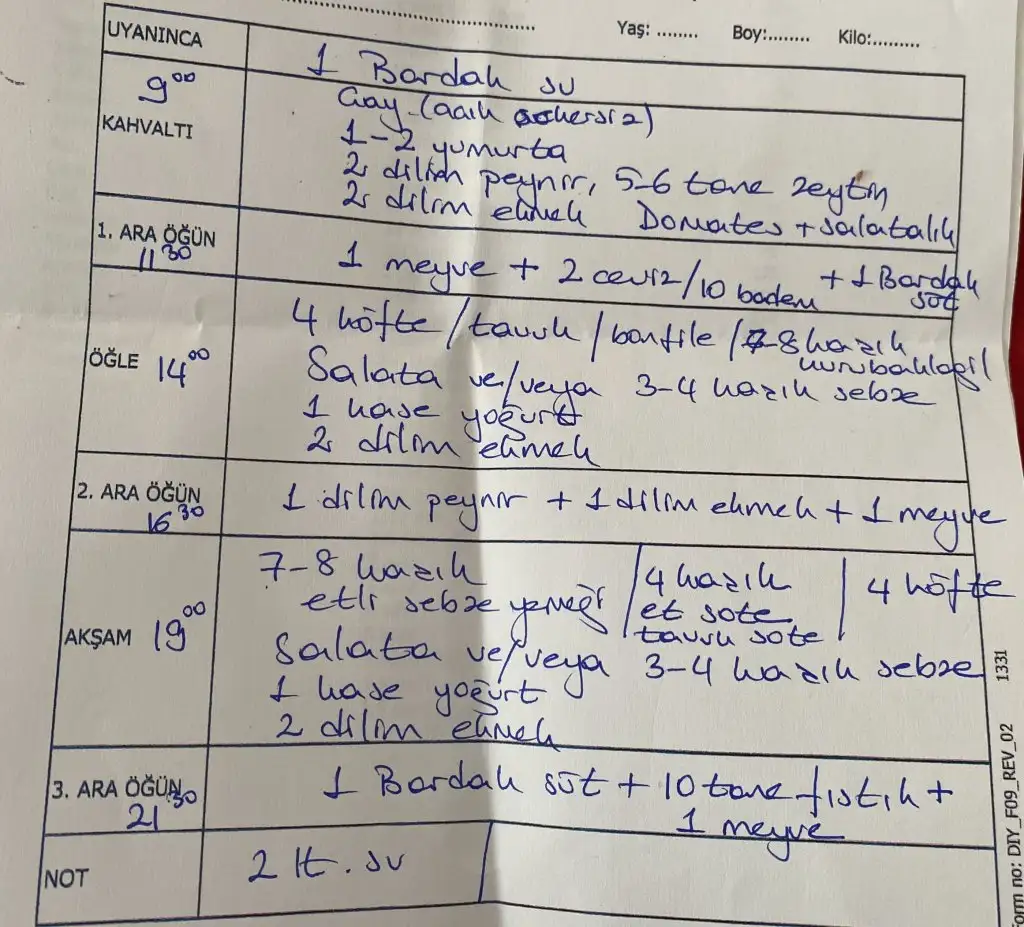 Yaş: ........ Boy:........ Kilo:.........
UYANINCA 1 Bardak su
9⁰⁰
KAHVALTI
Çay (açık şekersiz)
1-2 yumurta
2 dilim peynir, 5-6 tane zeytin
2 dilim ekmek Domates + salatalık
1. ARA ÖĞÜN
11³⁰
1 meyve + 2 ceviz/10 badem + 1 Bardak
süt
ÖĞLE 14⁰⁰
4 köfte / tavuk / bonfile / 7-8 kazık
kurubaklagil
Salata ve/veya 3-4 kazık sebze
1 kase yoğurt
2 dilim ekmek
2. ARA ÖĞÜN
16³⁰
1 dilim peynir + 1 dilim ekmek + 1 meyve
AKŞAM 19⁰⁰
7-8 kazık
etli sebze yemeği
4 kazık
et sote
tavuk sote
4 köfte
Salata ve/veya 3-4 kazık sebze
1 kase yoğurt
2 dilim ekmek
3. ARA ÖĞÜN
21³⁰
1 Bardak süt + 10 tane fıstık +
1 meyve
NOT 2 lt. su
Form no: DIY_F09_REV_02 1331